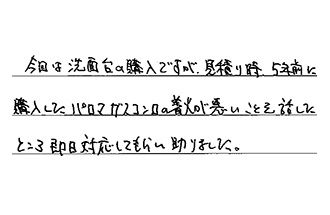 今回は洗面台の購入ですが、見積り時、5年前に
購入したパロマガスコンロの着火が悪いことを話した
ところ即日対応してもらい助りました。